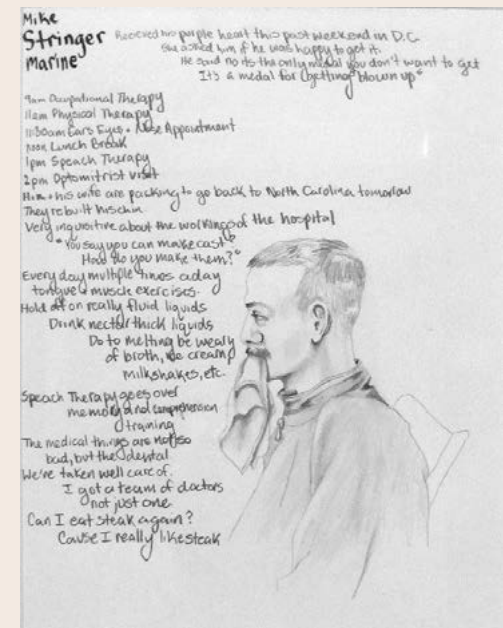 Mike
Stringer
Marine
Recieved his purple heart this past weekend in D.C
She asked him if he was happy to get it.
He said no its the only medal you don't want to get
It's a medal for "getting blown up"
9am Occupational Therapy
11am Physical Therapy
11:30am Ears Eyes + Nose Appointment
noon Lunch Break
1pm Speach Therapy
2pm Optomitrist visit
Him + his wife are packing to go back to North Carolina tomorrow
They rebuilt his chin
Very inquisitive about the workings of the hospital
"You say you can make cast"
How do you make them?"
Every day multiple times a day
tongue + muscle exercises.
Hold off on really fluid liquids
Drink nectar thick liquids
Do to melting be weary
of broth, ice cream
milkshakes, etc.
Speach Therapy goes over
memory and comprehension
training
The medical things are not so
bad, but the dental
We're taken well care of.
I got a team of doctors
not just one
Can I eat steak again?
Cause I really like steak